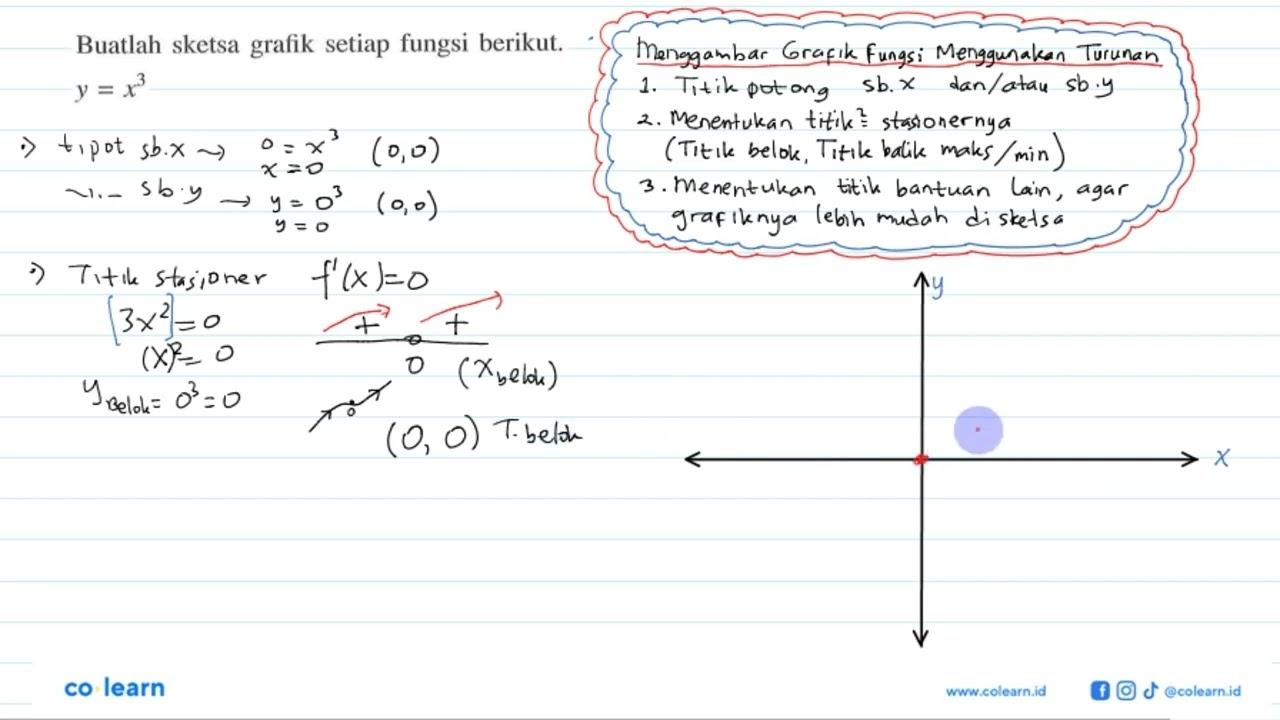 Buatlah sketsa grafik setiap fungsi berikut.
y = x³
Menggambar Grafik Fungsi Menggunakan Turunan
1. Titik potong sb.x dan/atau sb.y
2. Menentukan titik² stasionernya
(Titik belok, Titik balik maks/min)
3. Menentukan titik bantuan lain, agar
grafiknya lebih mudah di sketsa
tipot sb.x → 0 = x³ (0,0)
x = 0
sb.y → y = 0³ (0,0)
y = 0
Titik stasioner f'(x)=0
[3x²] = 0
(x)² = 0
y belok = 0³ = 0
+ +
0 (x belok)
0
(0, 0) T. belok
y
x
co learn
www.colearn.id
@colearn.id